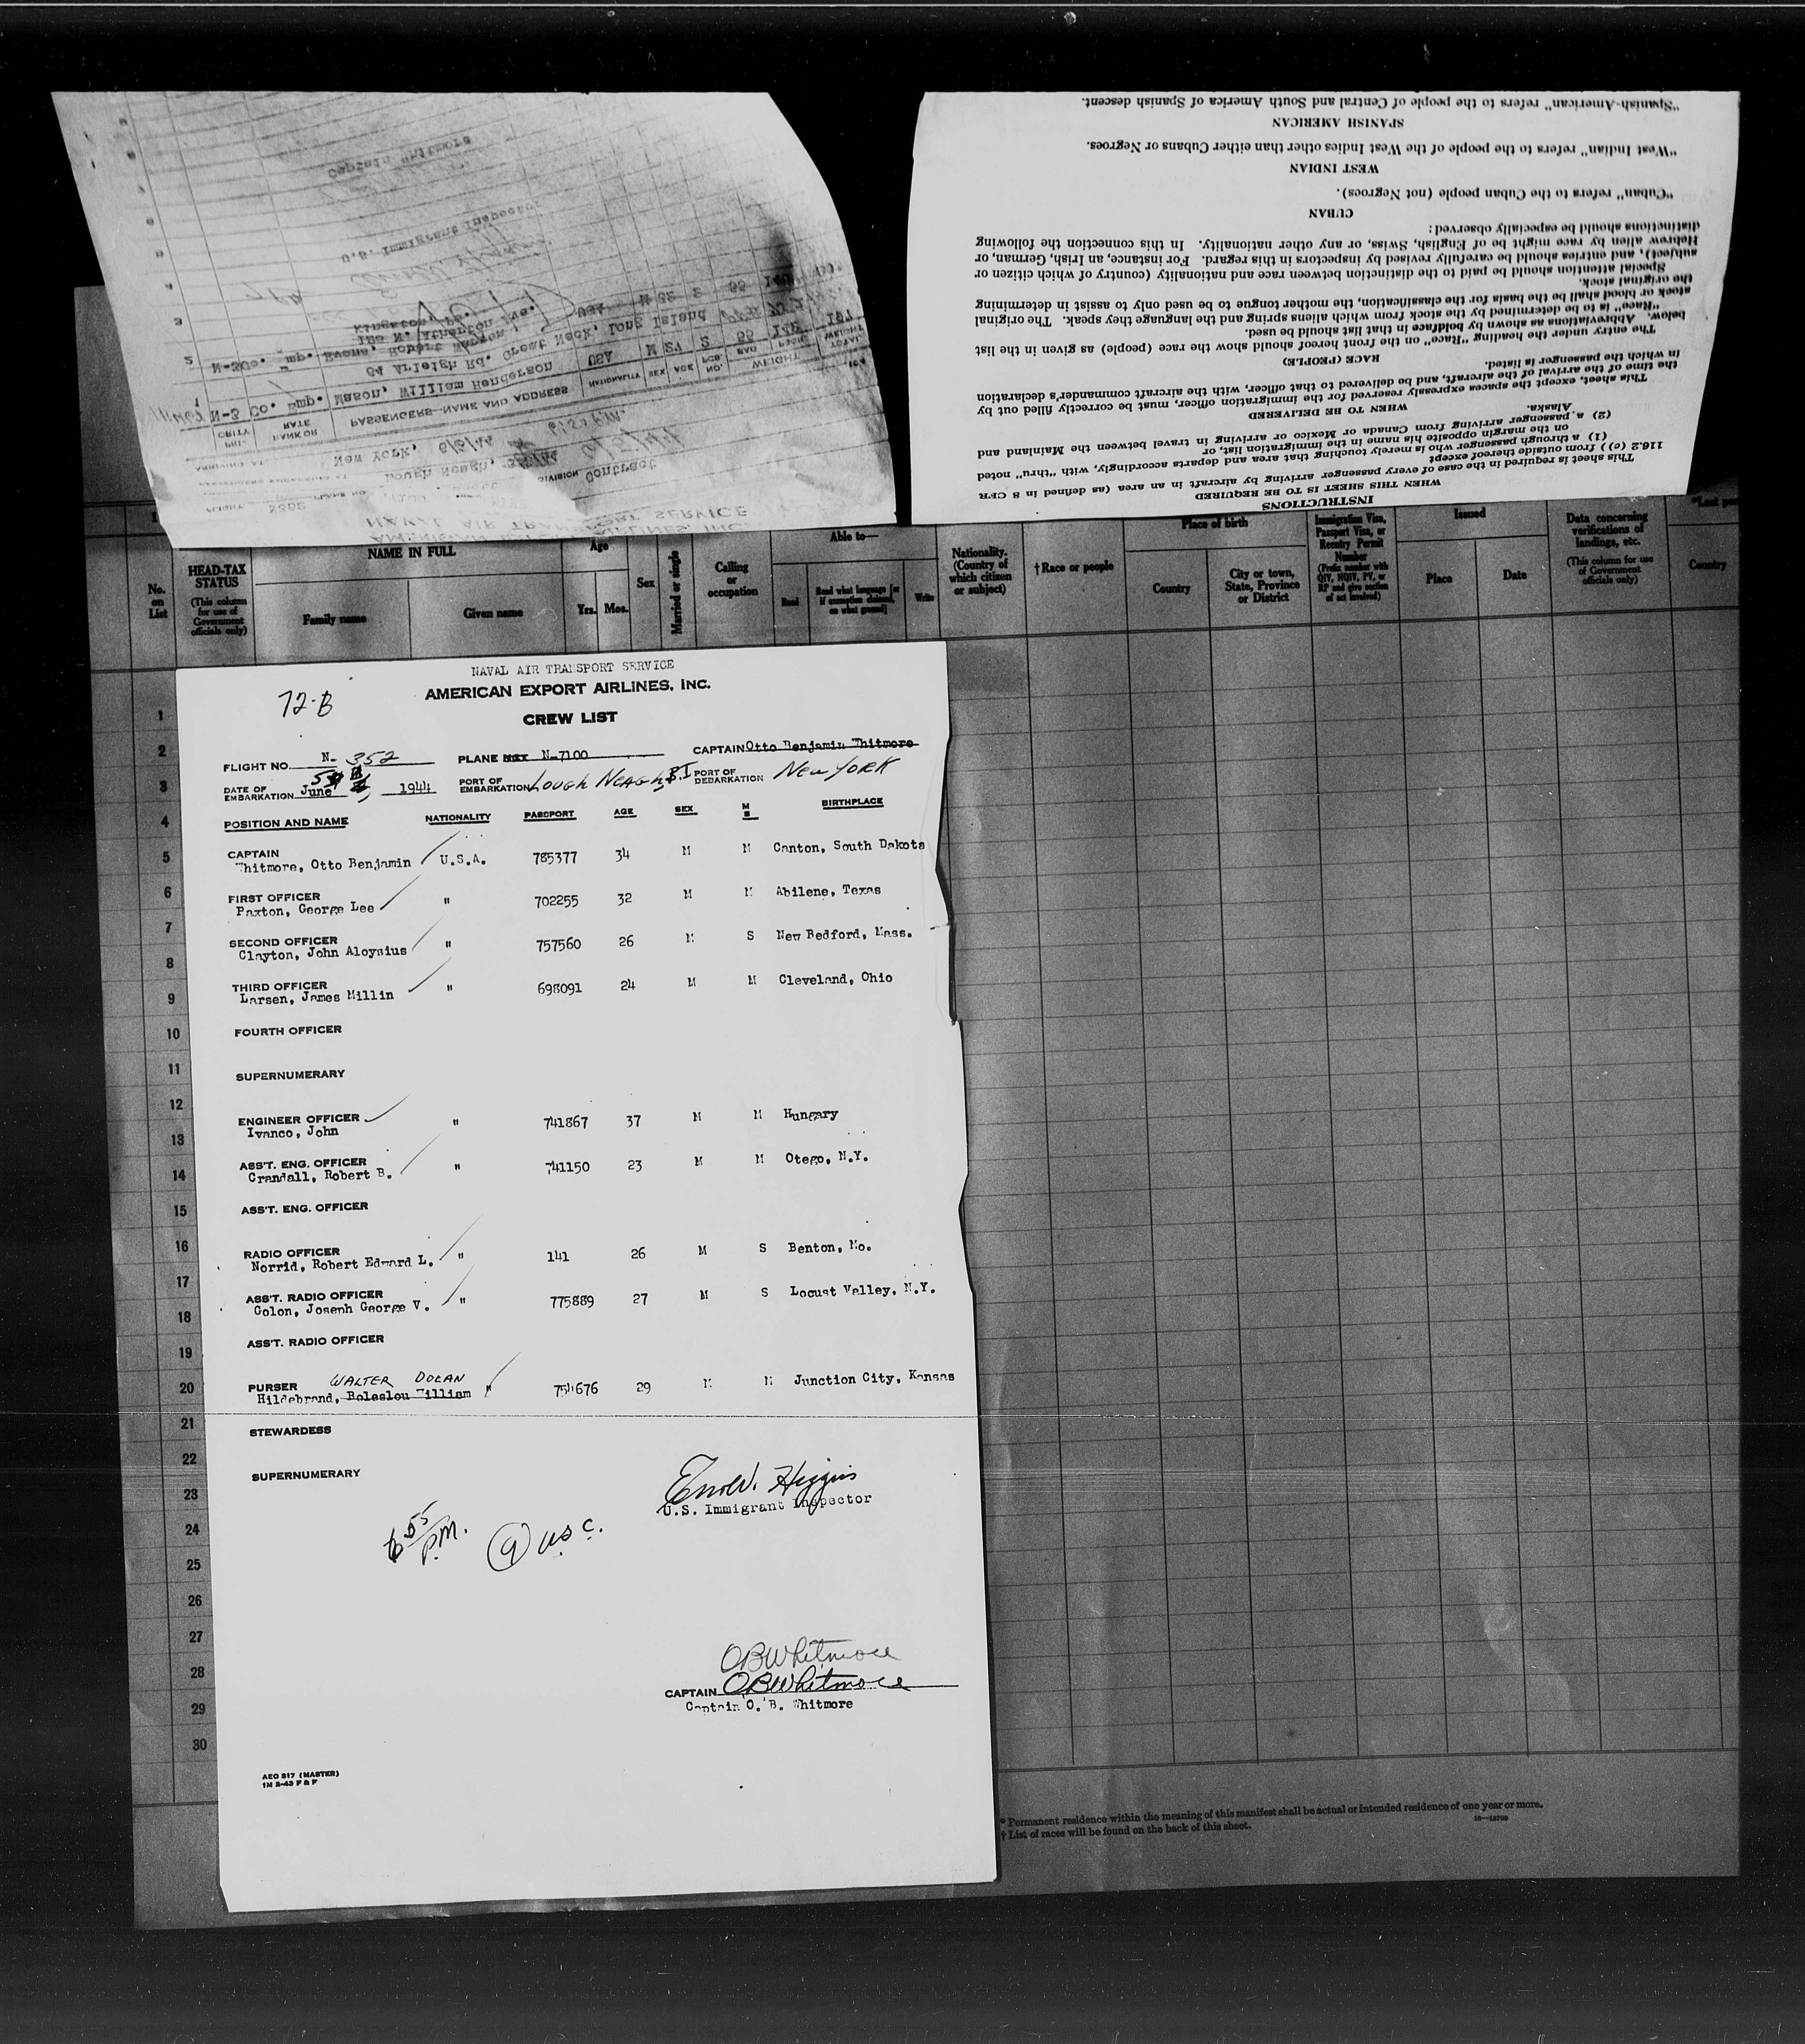 "Spanish-American" refers to the people of Central and South America of Spanish descent.
SPANISH AMERICAN
"West Indian" refers to the people of the West Indies other than either Cubans or Negroes.
WEST INDIAN
"Cuban" refers to the Cuban people (not Negroes).
CUBAN
distinctions should be especially observed:
Hebrew alien by race might be of English, Swiss, or any other nationality. In this connection the following
subject), and entries should be carefully revised by inspectors in this regard. For instance, an Irish, German, or
Special attention should be paid to the distinction between race and nationality (country of which citizen or
the original stock.
stock or blood shall be the basis for the classification, the mother tongue to be used only to assist in determining
"Race" is to be determined by the stock from which aliens spring and the language they speak. The original
below. Abbreviations as shown by boldface in that list should be used.
The entry under the heading "Race" on the front hereof should show the race (people) as given in the list
RACE (PEOPLE)
in which the passenger is listed.
the time of the arrival of the aircraft, and be delivered to that officer, with the aircraft commander's declaration
This sheet, except the spaces expressly reserved for the immigration officer, must be correctly filled out by
WHEN TO BE DELIVERED
Alaska.
(2) a passenger arriving from Canada or Mexico or arriving in travel between the Mainland and
on the margin opposite his name in the immigration list, or
(1) a through passenger who is merely touching that area and departs accordingly, with "thru" noted
116.2 (c)) from outside thereof except
This sheet is required in the case of every passenger arriving by aircraft in an area (as defined in 8 CFR
WHEN THIS SHEET IS TO BE REQUIRED
INSTRUCTIONS
Captain Whitmore
U.S. Immigrant Inspector
Kingston, Pa.
185 N. Atherton Ave.
Emp. Evans, Robert Warren USA M 32 2 55
64 Arleigh Rd. Great Neck, Long Island
N-3 Co. Emp. Mason, William Henderson USA M 27 2 55 142 197
PRIORITY RANK OR RATE PASSENGERS-NAME AND ADDRESS NATIONALITY SEX AGE NO. PCS. WEIGHT TOTAL WEIGHT
ARRIVING AT New York, 6/6/44
Lough Neagh, DIVISION Contract
FLIGHT PLANE NO.
NAVAL AIR TRANSPORT SERVICE
No. on List
HEAD-TAX STATUS
(This column for use of Government officials only)
NAME IN FULL
Family name
Given name
Age
Yrs. Mos.
Sex
Married or single
Calling or occupation
Able to—
Read
Read what language [or if exemption claimed, on what ground]
Write
Nationality. (Country of which citizen or subject)
†Race or people
Place of birth
Country
City or town, State, Province or District
Immigration Visa, Passport Visa, or Reentry Permit Number
(Prefix number with QIV, NQIV, PV, or RP and give section of act involved)
Issued
Place
Date
Data concerning verifications of landings, etc.
(This column for use of Government officials only)
Country
1
2
3
4
5
6
7
8
9
10
11
12
13
14
15
16
17
18
19
20
21
22
23
24
25
26
27
28
29
30
NAVAL AIR TRANSPORT SERVICE
72-B
AMERICAN EXPORT AIRLINES, INC.
CREW LIST
FLIGHT NO. N- 352 PLANE N-7100 CAPTAIN Otto Benjamin Whitmore
DATE OF EMBARKATION June 5, 1944 PORT OF EMBARKATION Lough Neagh, B.I PORT OF DEBARKATION New York
POSITION AND NAME NATIONALITY PASSPORT AGE SEX M S BIRTHPLACE
CAPTAIN
Whitmore, Otto Benjamin U.S.A. 785377 34 M M Canton, South Dakota
FIRST OFFICER
Paxton, George Lee " 702255 32 M M Abilene, Texas
SECOND OFFICER
Clayton, John Aloysius " 757560 26 M S New Bedford, Mass.
THIRD OFFICER
Larsen, James Millin " 698091 24 M M Cleveland, Ohio
FOURTH OFFICER
SUPERNUMERARY
ENGINEER OFFICER
Ivanco, John " 741867 37 M M Hungary
ASS'T. ENG. OFFICER
Crandall, Robert B. " 741150 23 M M Otego, N.Y.
ASS'T. ENG. OFFICER
RADIO OFFICER
Norrid, Robert Edward L. " 141 26 M S Benton, Mo.
ASS'T. RADIO OFFICER
Colon, Joseph George V. " 775889 27 M S Locust Valley, N.Y.
ASS'T. RADIO OFFICER
PURSER WALTER DOLAN
Hildebrand, Boleslou William " 754676 29 M M Junction City, Kansas
STEWARDESS
SUPERNUMERARY
Enol W. Higgins
U.S. Immigrant Inspector
6 55 P.M. 9 USC.
OBWhitmore
CAPTAIN OBWhitmore
Captain O. B. Whitmore
AEO 317 (MASTER)
1M 2-43 P & P
* Permanent residence within the meaning of this manifest shall be actual or intended residence of one year or more.
† List of races will be found on the back of this sheet.